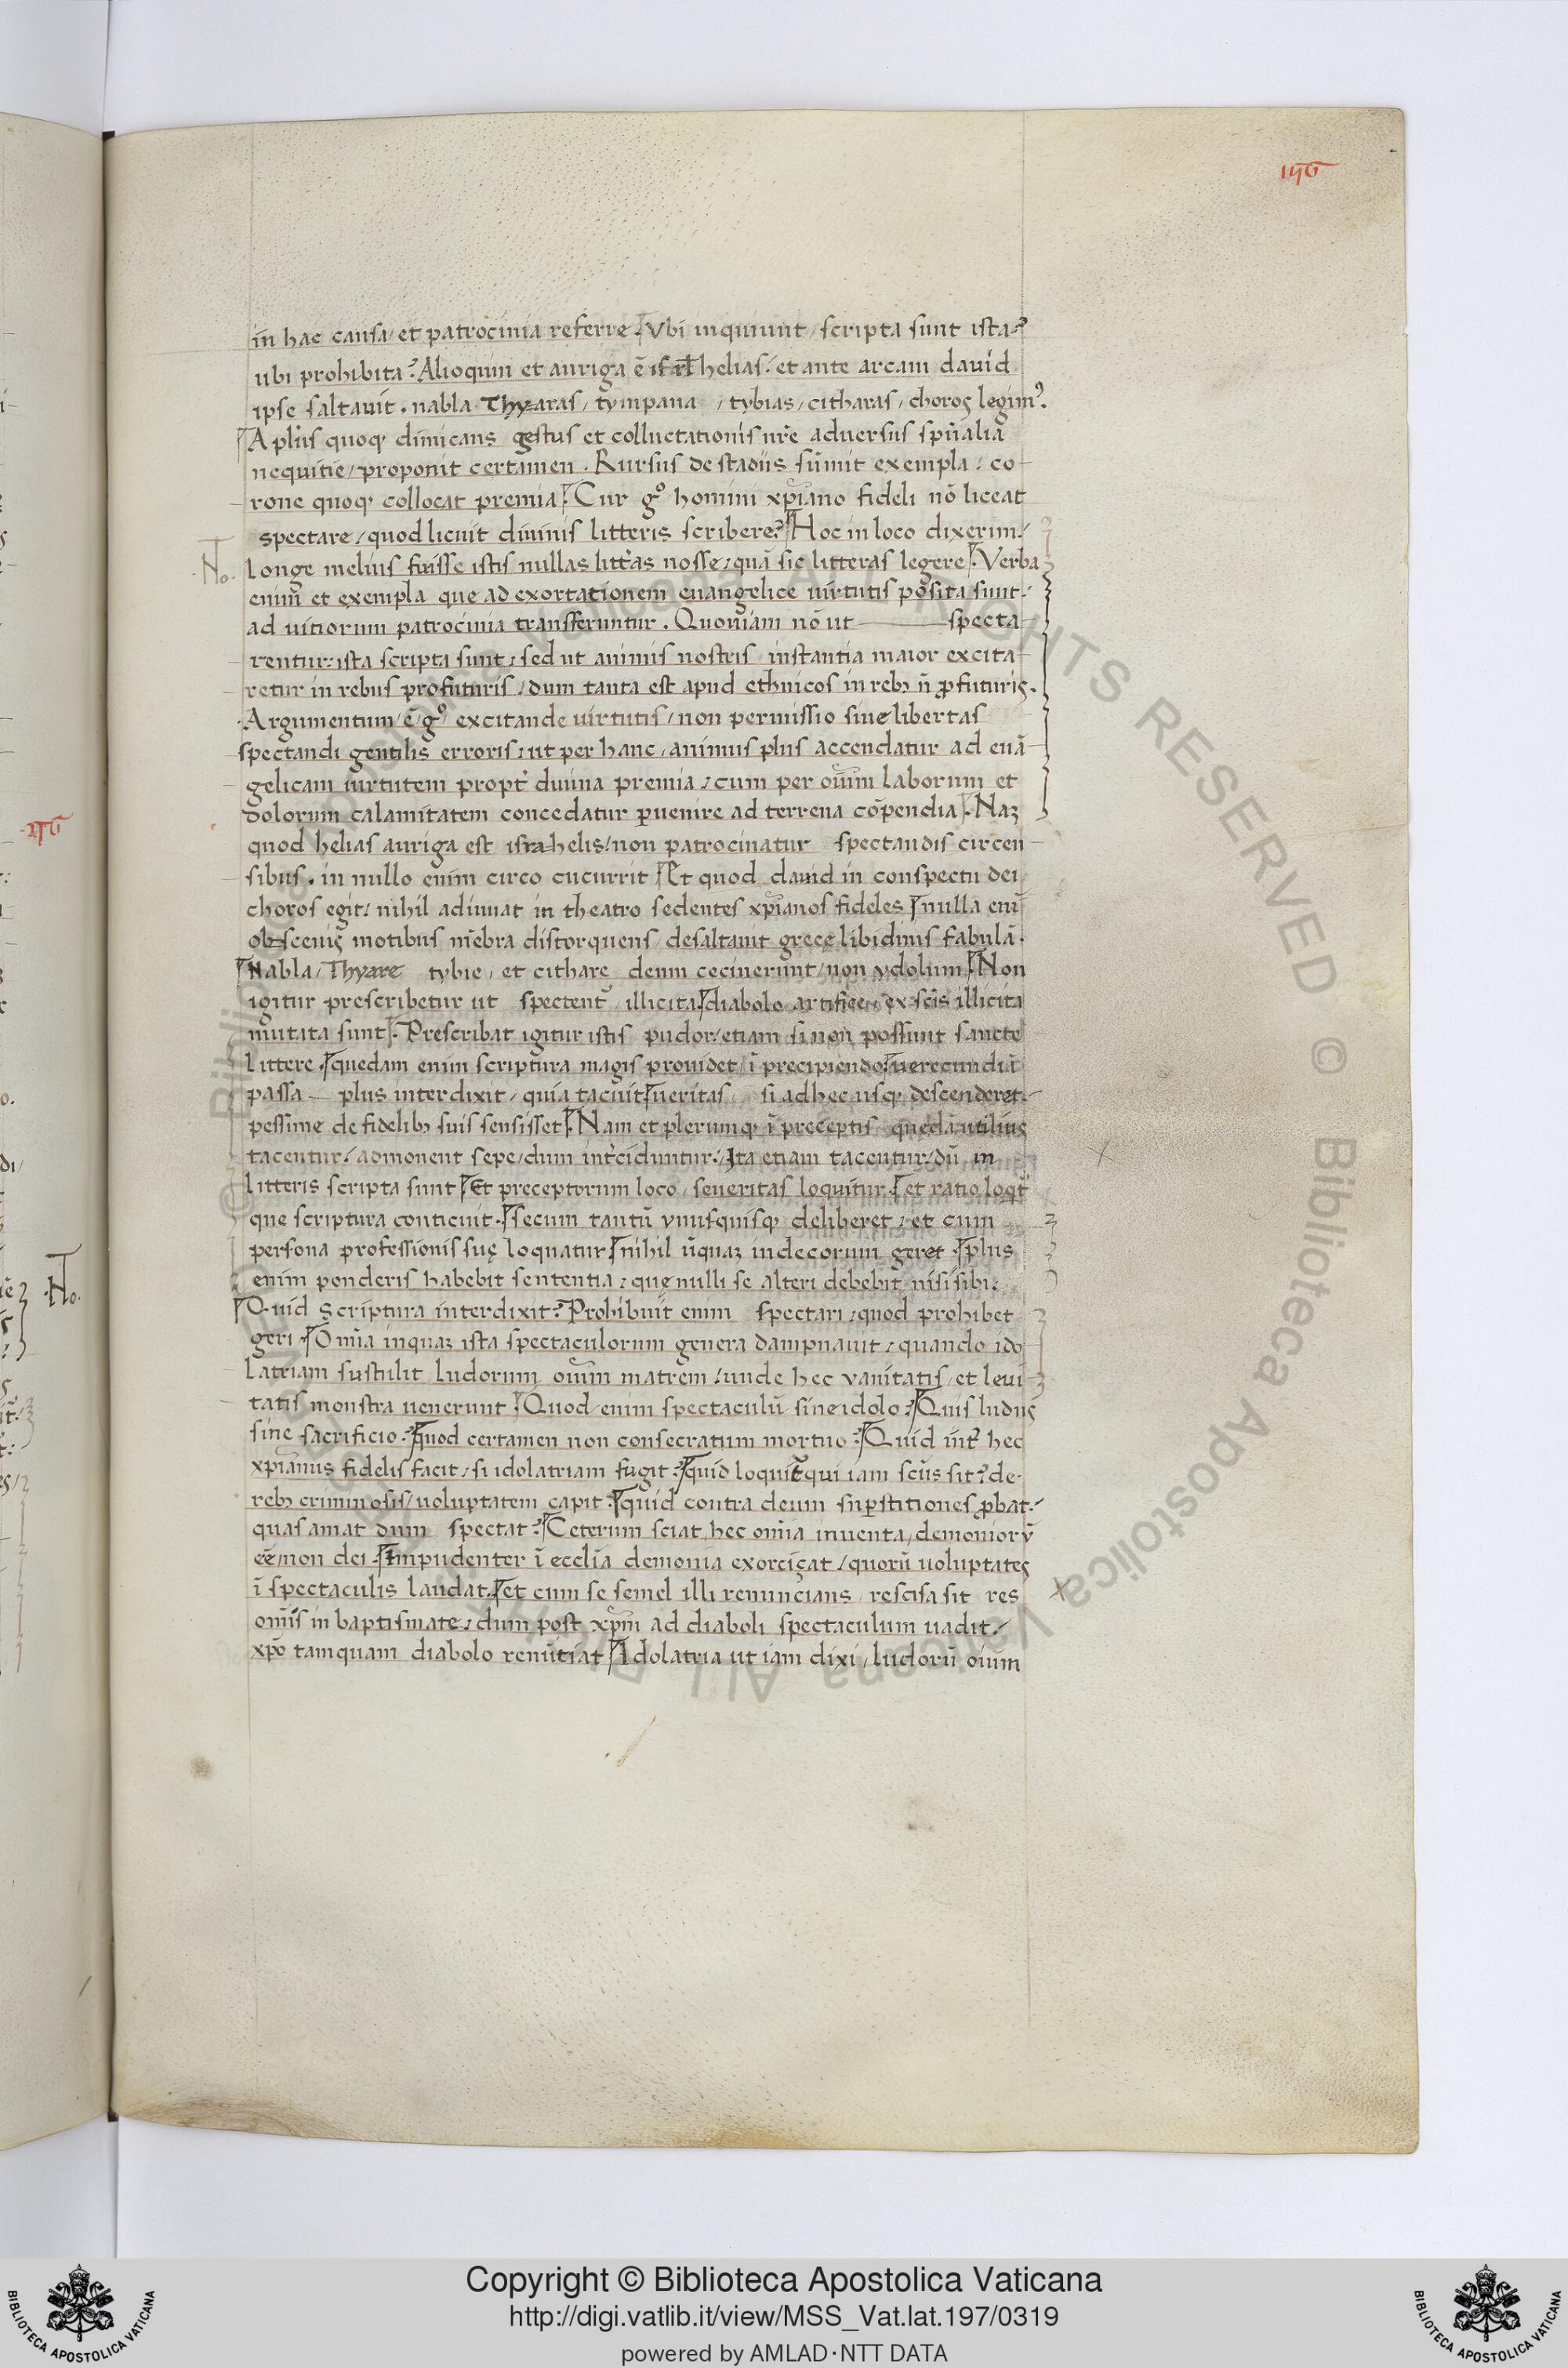 in hac causa / et patrocinia referre . Vbi inquiunt / scripta sunt ista ?
ubi prohibita ? Alioquin et auriga ē isrl̄ helias / et ante arcam dauid
ipse saltauit . nabla Thyaras / tympana / tybias / citharas / choros legim⁹ .
Apl̄us quoqꝫ dimicans gestus et colluctationis nr̄e aduersus spūalia
nequitie / proponit certamen . Rursus de stadiis sumit exempla / co-
rone quoqꝫ collocat premia . Cur gº homini xp̄iano fideli nō liceat
spectare / quod licuit diuinis litteris scribere ? Hoc in loco dixerim /
No.
longe melius fuisse istis nullas litt̄as nosse / quā sic litteras legere . Verba
enim et exempla que ad exortationem euangelice uirtutis posita sunt /
ad uitiorum patrocinia transferuntur . Quoniam nō ut specta-
rentur / ista scripta sunt / sed ut animis nostris instantia maior excita-
retur in rebus profuturis / dum tanta est apud ethnicos in rebꝫ n̄ ꝓfuturis .
Argumentum / ē / gº excitande uirtutis / non permissio siue libertas
spectandi gentilis erroris / ut per hanc / animus plus accendatur ad euā-
gelicam uirtutem propt̄ diuina premia / cum per oīum laborum et
dolorum calamitatem concedatur ꝑuenire ad terrena cōpendia . Naꝫ
quod helias auriga est israhelis / non patrocinatur spectandis circen-
sibus . in nullo enim circo cucurrit Et quod dauid in conspectu dei
choros egit / nihil adiuuat in theatro sedentes xp̄ianos fideles nulla eni̅
obscenis motibus mēbra distorquens / desaltauit grecę libidinis fabulā .
Nabla / Thyare tybie / et cithare deum cecinerunt / non ydolum Non
igitur prescribetur ut spectent̄ illicita / diabolo artifice / ex scīs illicita
mutata sunt . Prescribat igitur istis pudor / etiam si non possunt sancte
littere . quedam enim scriptura magis prouidet / ī precipiendo / uerecundiā
passa plus interdixit / quia tacuit ueritas si ad hec usqꝫ descenderet /
pessime de fidelibꝫ suis sensisset . Nam et plerumqꝫ ī preceptis quedā utilius
tacentur / admonent sepe / dum int̄ciduntur / Ita etiam tacentur / dū in
litteris scripta sunt Et preceptorum loco / seueritas loquitur et ratio loqt̄
que scriptura conticuit . secum tantū vnusquisqꝫ deliberet / et cum
persona professionis suę loquatur nihil ūquaꝫ indecorum geret . plus
enim ponderis habebit sententia / quę nulli se alteri debebit nisi sibi .
Quid scriptura interdixit ? Prohibuit enim spectari / quod prohibet
geri . Om̄ia inquaꝫ ista spectaculorum genera dampnauit / quando ido-
latriam sustulit ludorum oīum matrem / unde hec vanitatis et leui-
tatis monstra uenerunt . Quod enim spectaculū sine idolo ? Quis ludus
sine sacrificio ? quod certamen non consecratum mortuo ? Quid int̄ hec
xp̄ianus fidelis facit / si idolatriam fugit ? quid loquit̄ qui iam scūs sit ? de
rebꝫ criminosis / uoluptatem capit . quid contra deum suꝑstitiones ꝓbat /
quas amat dum spectat ? Ceterum sciat hec om̄ia inuenta / demoniorū
eē / non dei . Impudenter ī ecclīa demonia exorcizat / quorū uoluptates
ī spectaculis laudat . et cum se semel illi renuncians rescisa sit res
om̄is in baptismate / dum post xp̄m ad diaboli spectaculum uadit /
xp̄o tamquam diabolo renūtiat Idolatria ut iam dixi / ludorū oīum
Copyright © Biblioteca Apostolica Vaticana
http://digi.vatlib.it/view/MSS_Vat.lat.197/0319
powered by AMLAD·NTT DATA